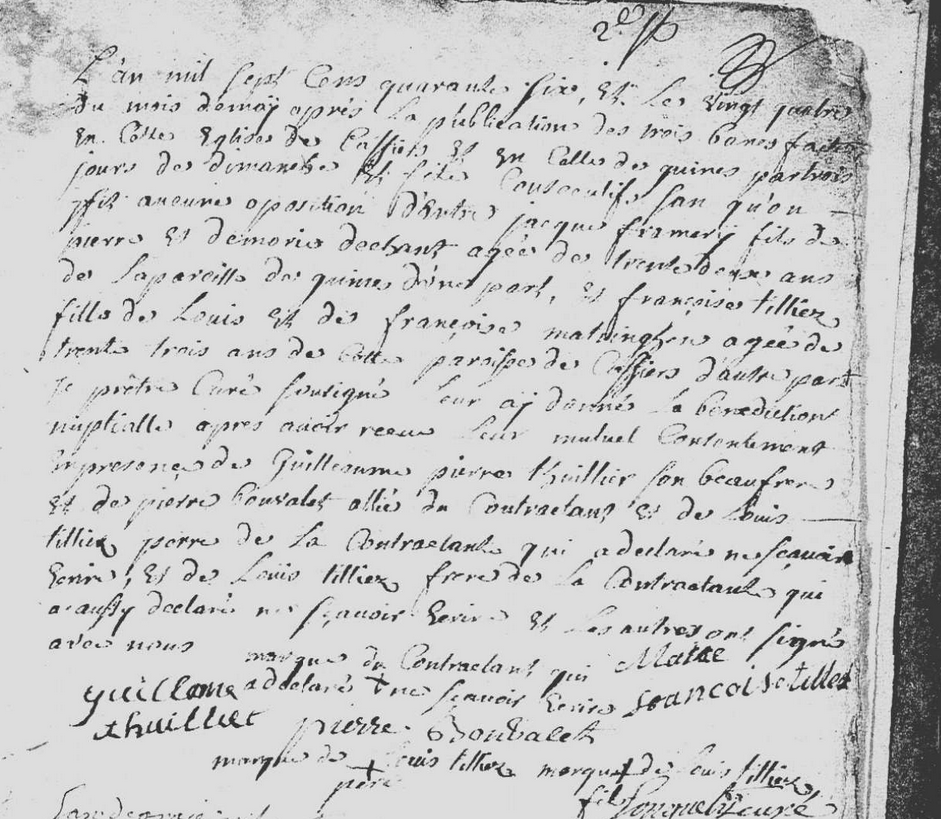 L'an mil sept Cens quarante six, Et Le vingt quatre
du mois demay aprés La publication des trois bancs faite
En Cette Eglise de Caffiers Et En Celle de quines par trois
jours de dimanche Et fete Consecutifs san qu'on
fit aucune oposition D'Entre jacque framery fils de
pierre Et demarie dechant agée de trente deux ans
de Laparoisse de quines d'une part, Et françoise tilliez
fille de Louis Et de françoise matringhen agée de
trente trois ans de Cette paroisse de Caffiers d'autre part
Je prêtre Curé soutigné Leur aj donné La benediction
nuptialle apres avoir receue Leur mutuel Contentement
En presence de Guilleaume pierre thuillier son beaufrere
Et de pierre bouvalet allié du Contractant Et de Louis
tilliez perre de La Contractante qui adeclaré ne sçavoir
Ecrire, Et de Louis tilliez frere de La Contractante qui
a aussy declaré ne sçavoir Ecrire Et Les autres ont signés
avec nous
marque du Contractant qui
adeclaré ne sçavoir Ecrire francoise tilliez
guillame
thuillier pierre Bouvalet
marque de Louis tilliez marque de Louis tilliez
pere fils curé